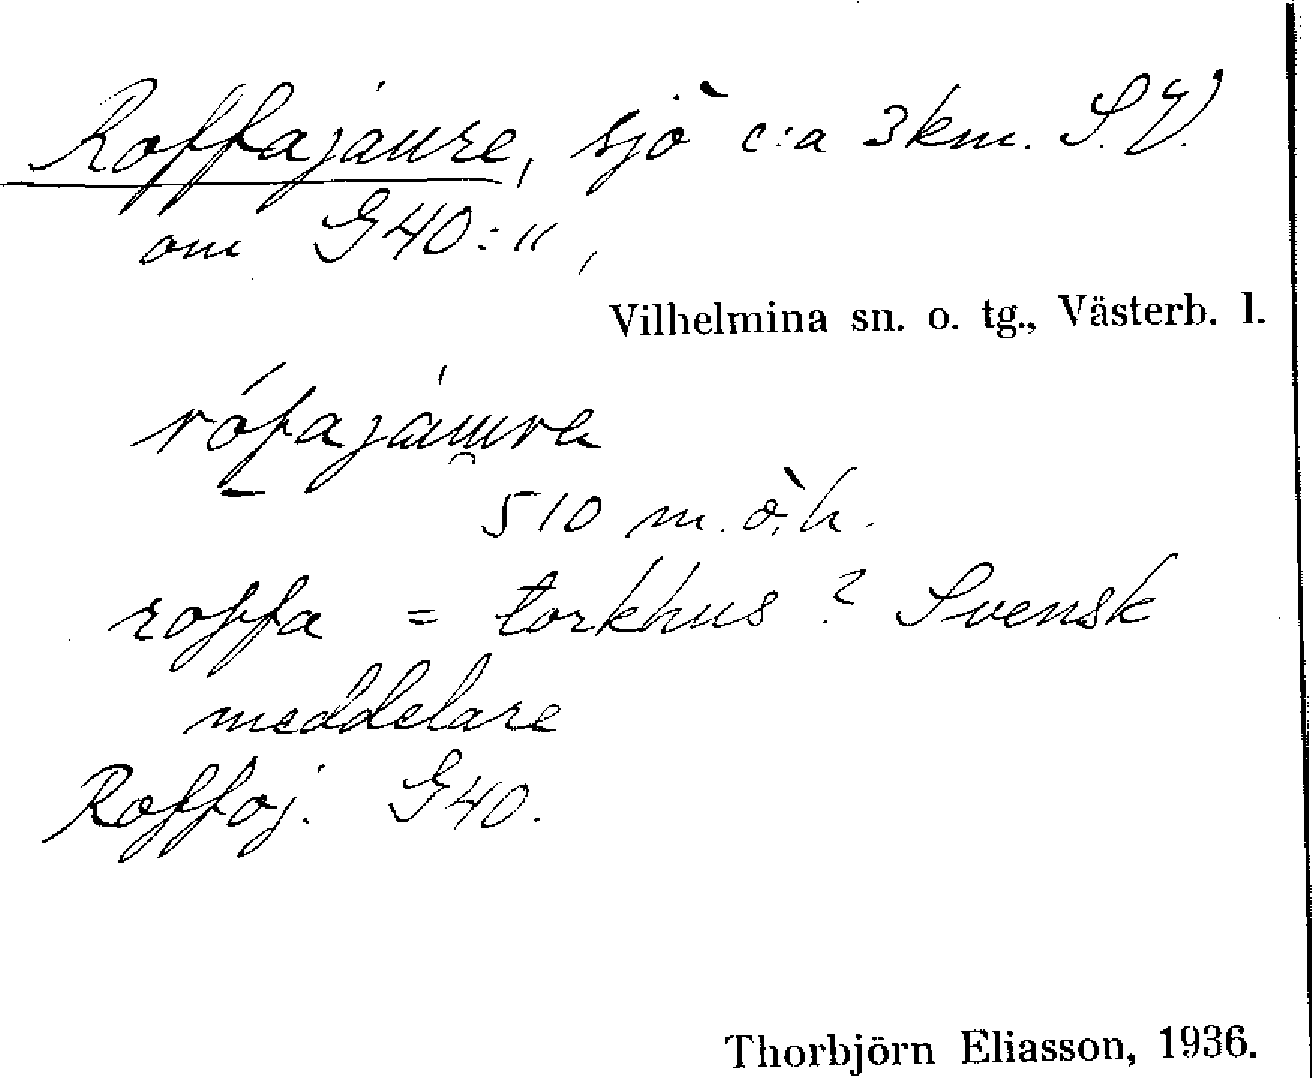 Roffajaure, sjö c:a 3 km. S.V.
om G40:",
Vilhelmina sn. o. tg., Västerb. l.
510 m.ö.h.
roffa = torkhus? Svensk
meddelare
Roffoj. G40.
Thorbjörn Eliasson, 1936.